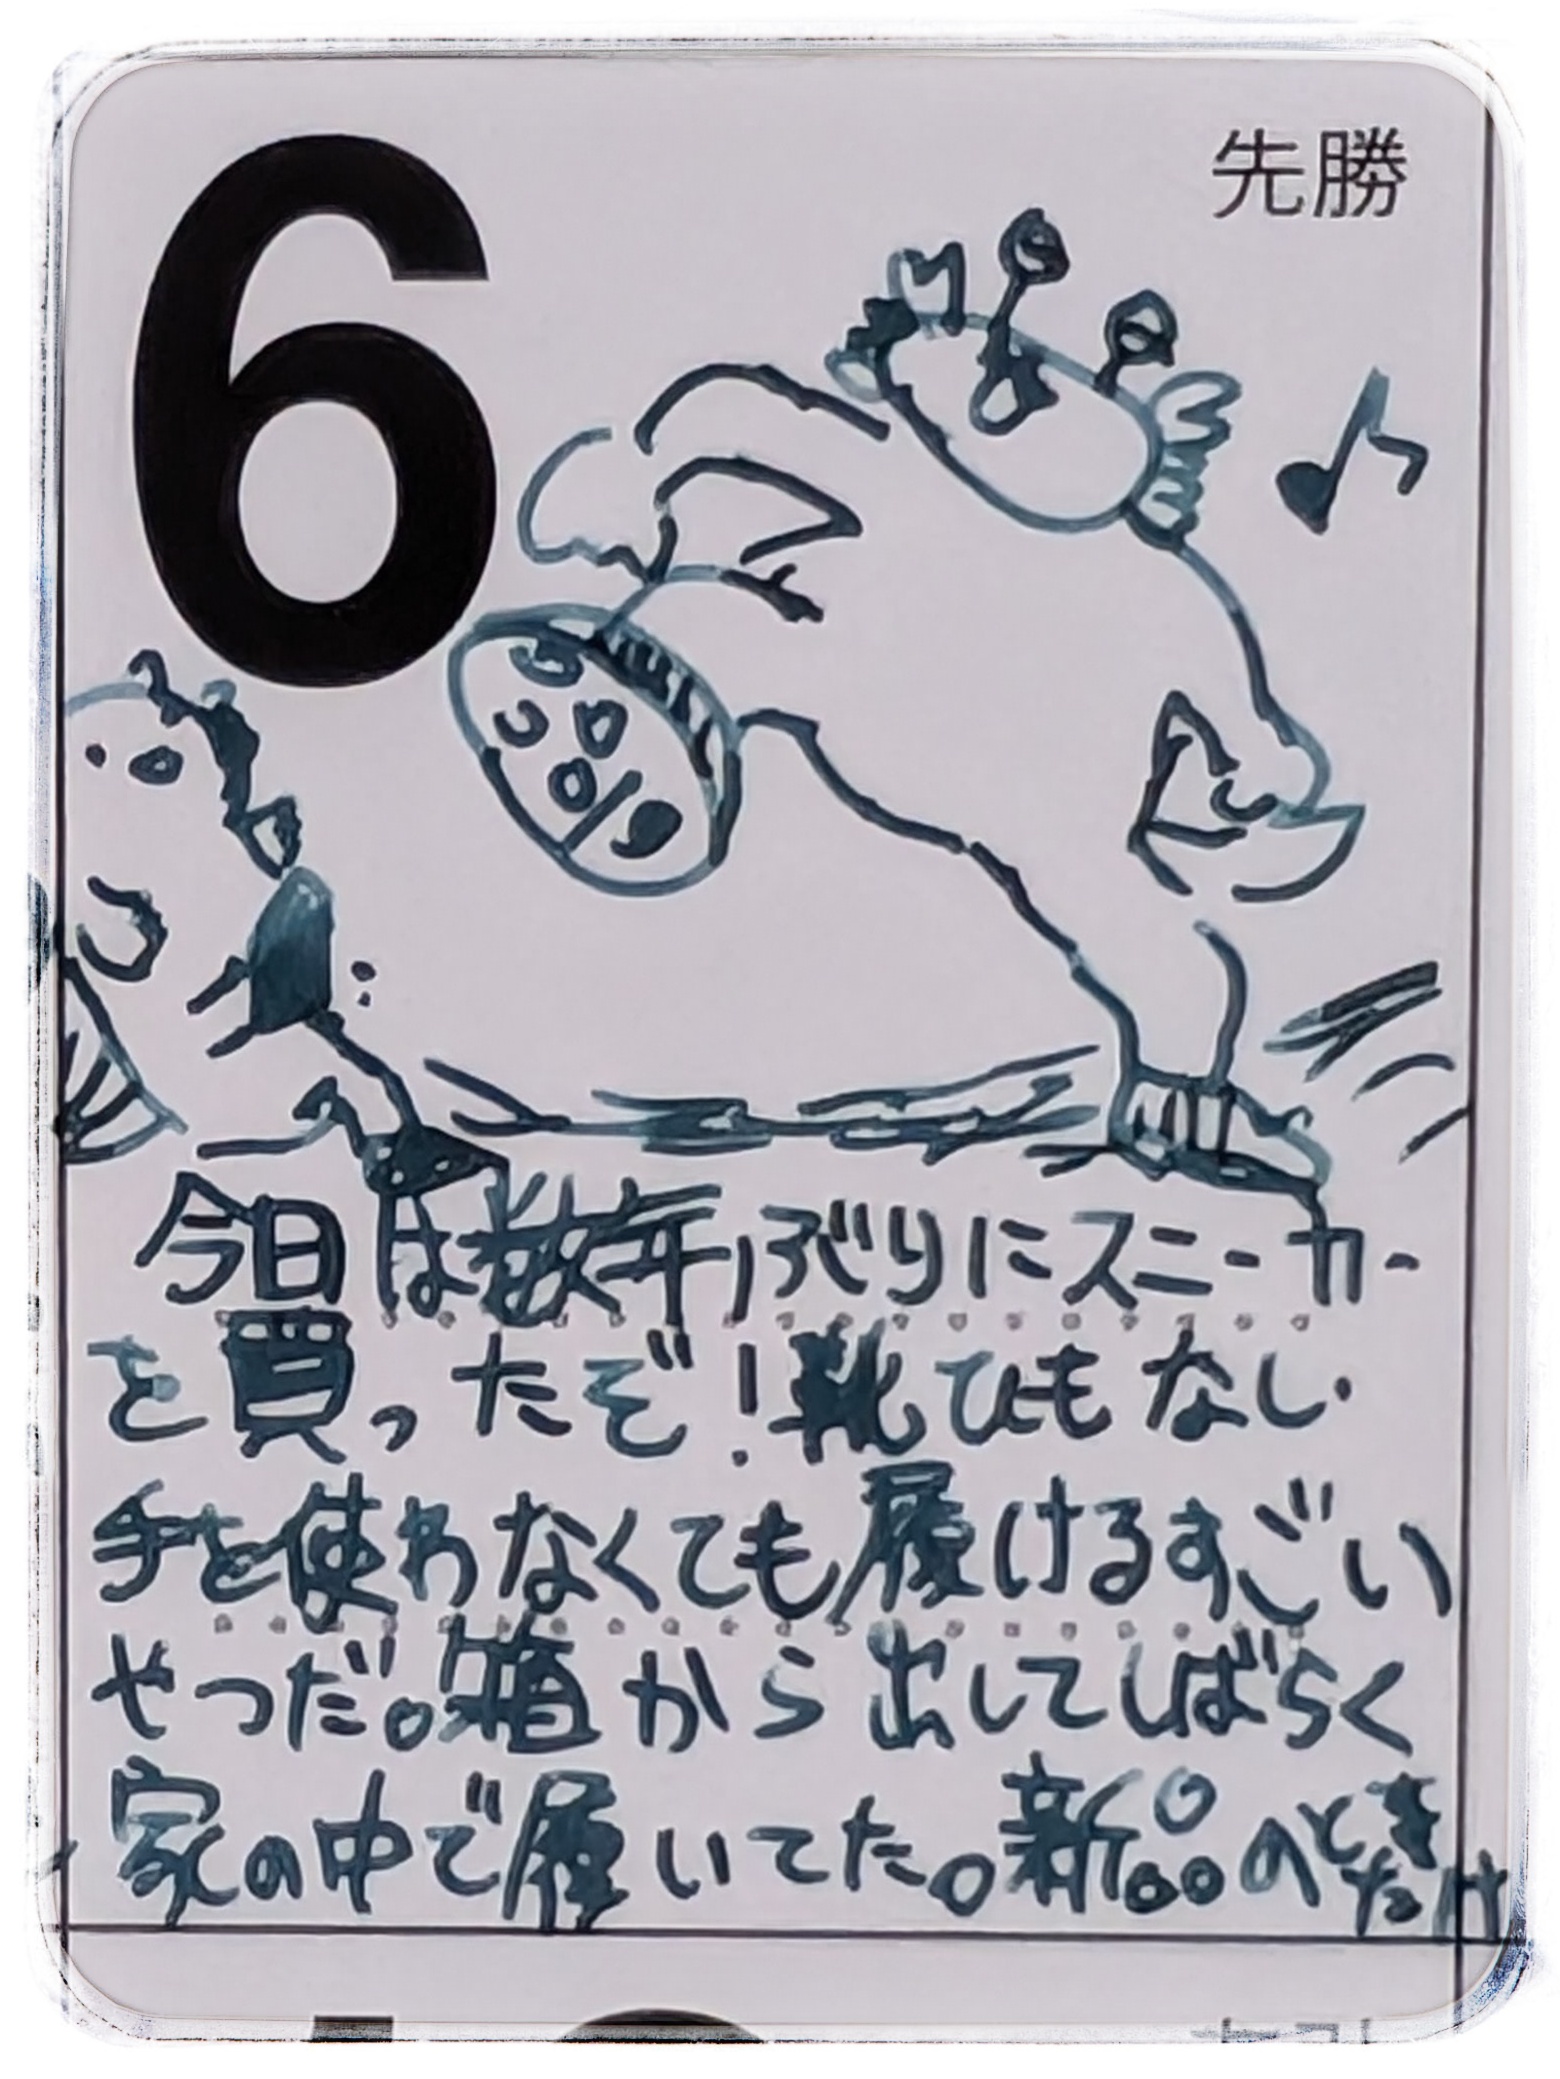 6
先勝
今日は数年ぶりにスニーカー
を買ったぞ！靴ひもなし
手を使わなくても履けるすごい
やつだ。箱から出してしばらく
家の中で履いてた。新品のときだけ